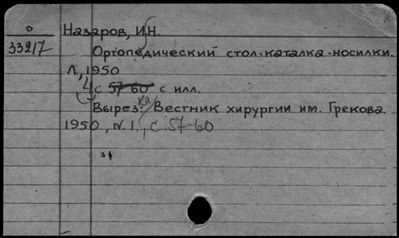 О
33217
Назаров, И.Н.
Ортопедический стол-каталка-носилки.
Л., 1950
4 с 57-60 с илл.
Вырез. из Вестник хирургии им. Грекова.
1950, N. 1., с 57-60